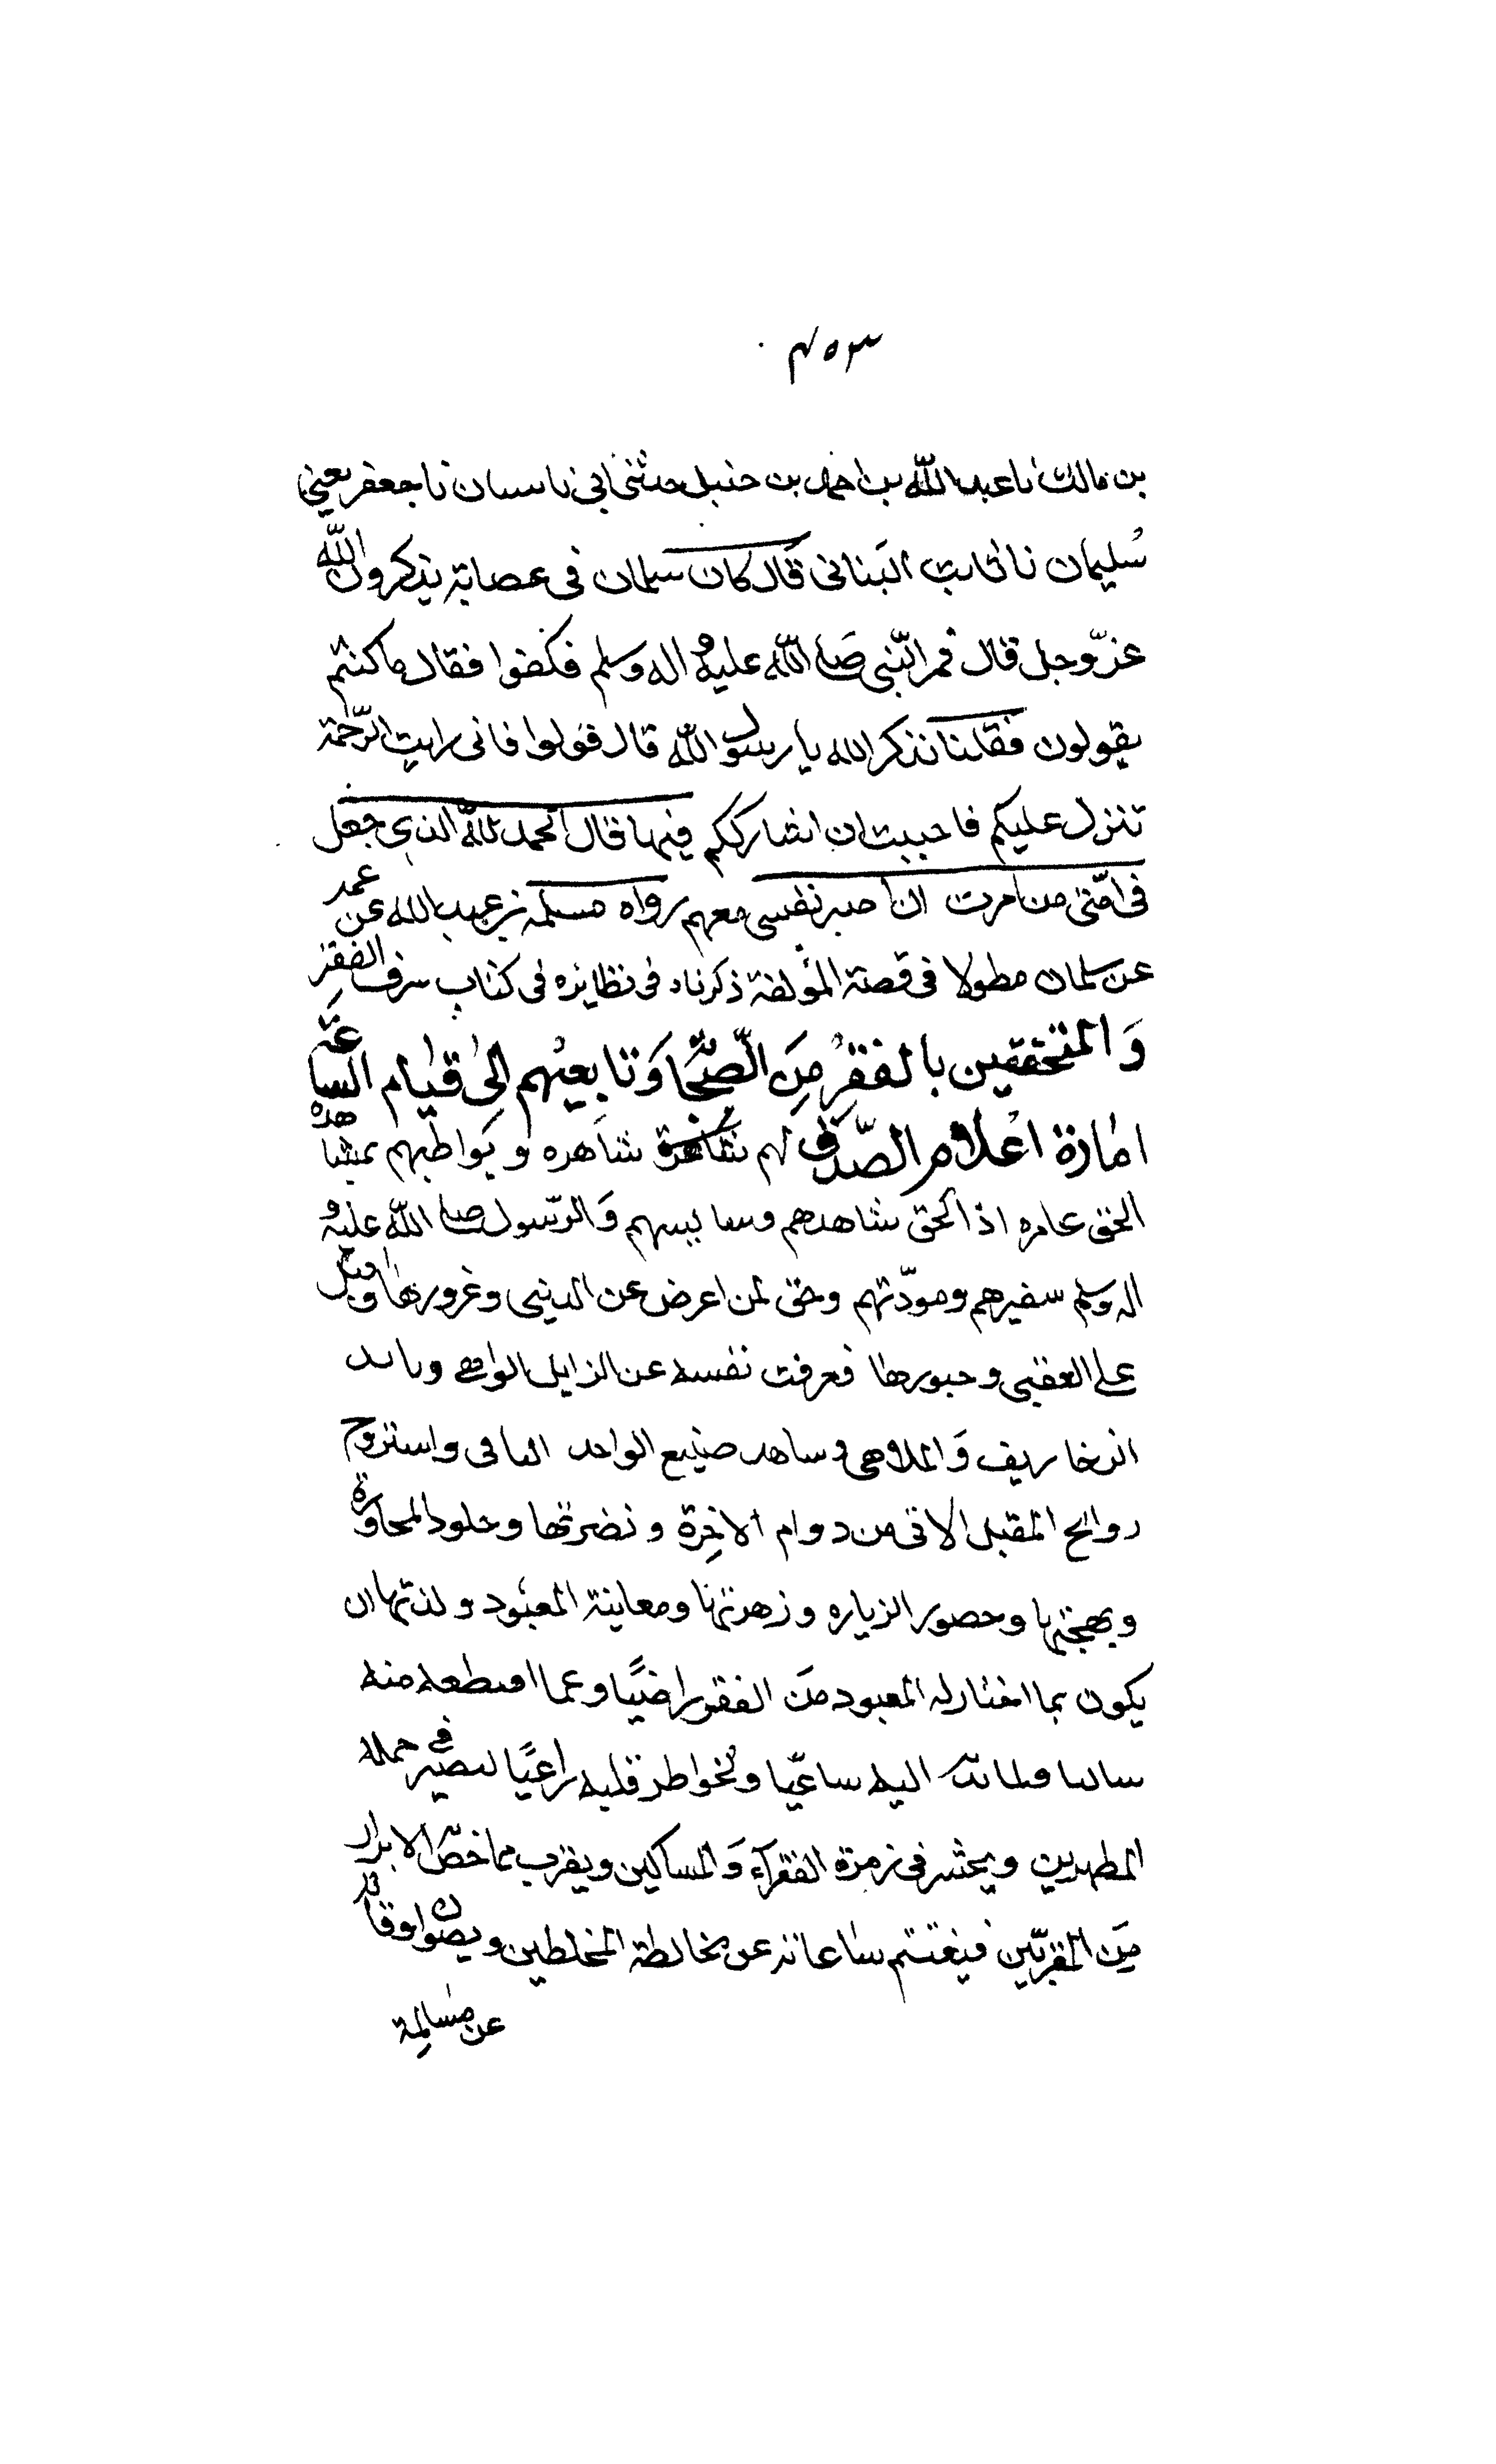 ٣٥٣
بن مالك نا عبد الله بن احمد بن حنبل حدثنى ابى نا سيار نا جعفر يعنى
سُليمان نا ثابت البَنانى قال كان سلمان فى عصابة يذكرون الله
عزّ وجل قال فمر النّبى صَلى الله عليه و اله وسلم فكفوا فقال ما كنتم
يقولون فقلنا نذكر الله يا رسول الله قال قولوا فانى رايت الرّحمة
تنزل عليكم فاحببت ان اشارككم فيها قال الحمد لله الذى جعل
فى امّتى من امرت ان اصبر نفسى معهم رواه مسلمه بن عبد الله عن عمه
عن سلمان مطولا فى قصة المؤلفة ذكرناه فى نظايره فى كتاب شرف الفقر
وَالمتحققين بالفقرُ مِنَ الصّحَابَة وَتابعيهم إلى قيام الساعَة
امارة اعْلام الصّدق لهم شاهره و بواطنهم بمشاهدة
الحق عامره اذ الحق شاهدهم وسايسهم وَالرّسول صلى الله عليه و
اله وسلم سفيرهم ومودّتهم وحق لمن اعرض عن الدنيى وغرورها واقبل
على العقبى وحبورها فعرفت نفسه عن الزايل الواهى ونابذ
الزخاريف وَالملاهى وشاهد صنيع الواحد الباقى واستروح
روايح المقبل الاتى من دوام الآخِرة ونضرتها وخلود المجاورة
وبهجتها وحضور الزياره وزهرتها ومعاينة المعبُود ولذتها ان
يكون بما اختار له المعبود منَ الفقر راضيًا وعما اقتطعه منه
ساليا ولما ندبه اليه ساعيًا ولخواطر قلبه راعيًا ليصير فى جمله
المطهرين ويحشر فى زمرة الفقرآء وَالمساكين ويقرب مما خصّ الابرار
مِنَ المقربّين فيغتنم ساعاته عن مخالطة المخلطين ويصون اوقاته
عن مسالمة